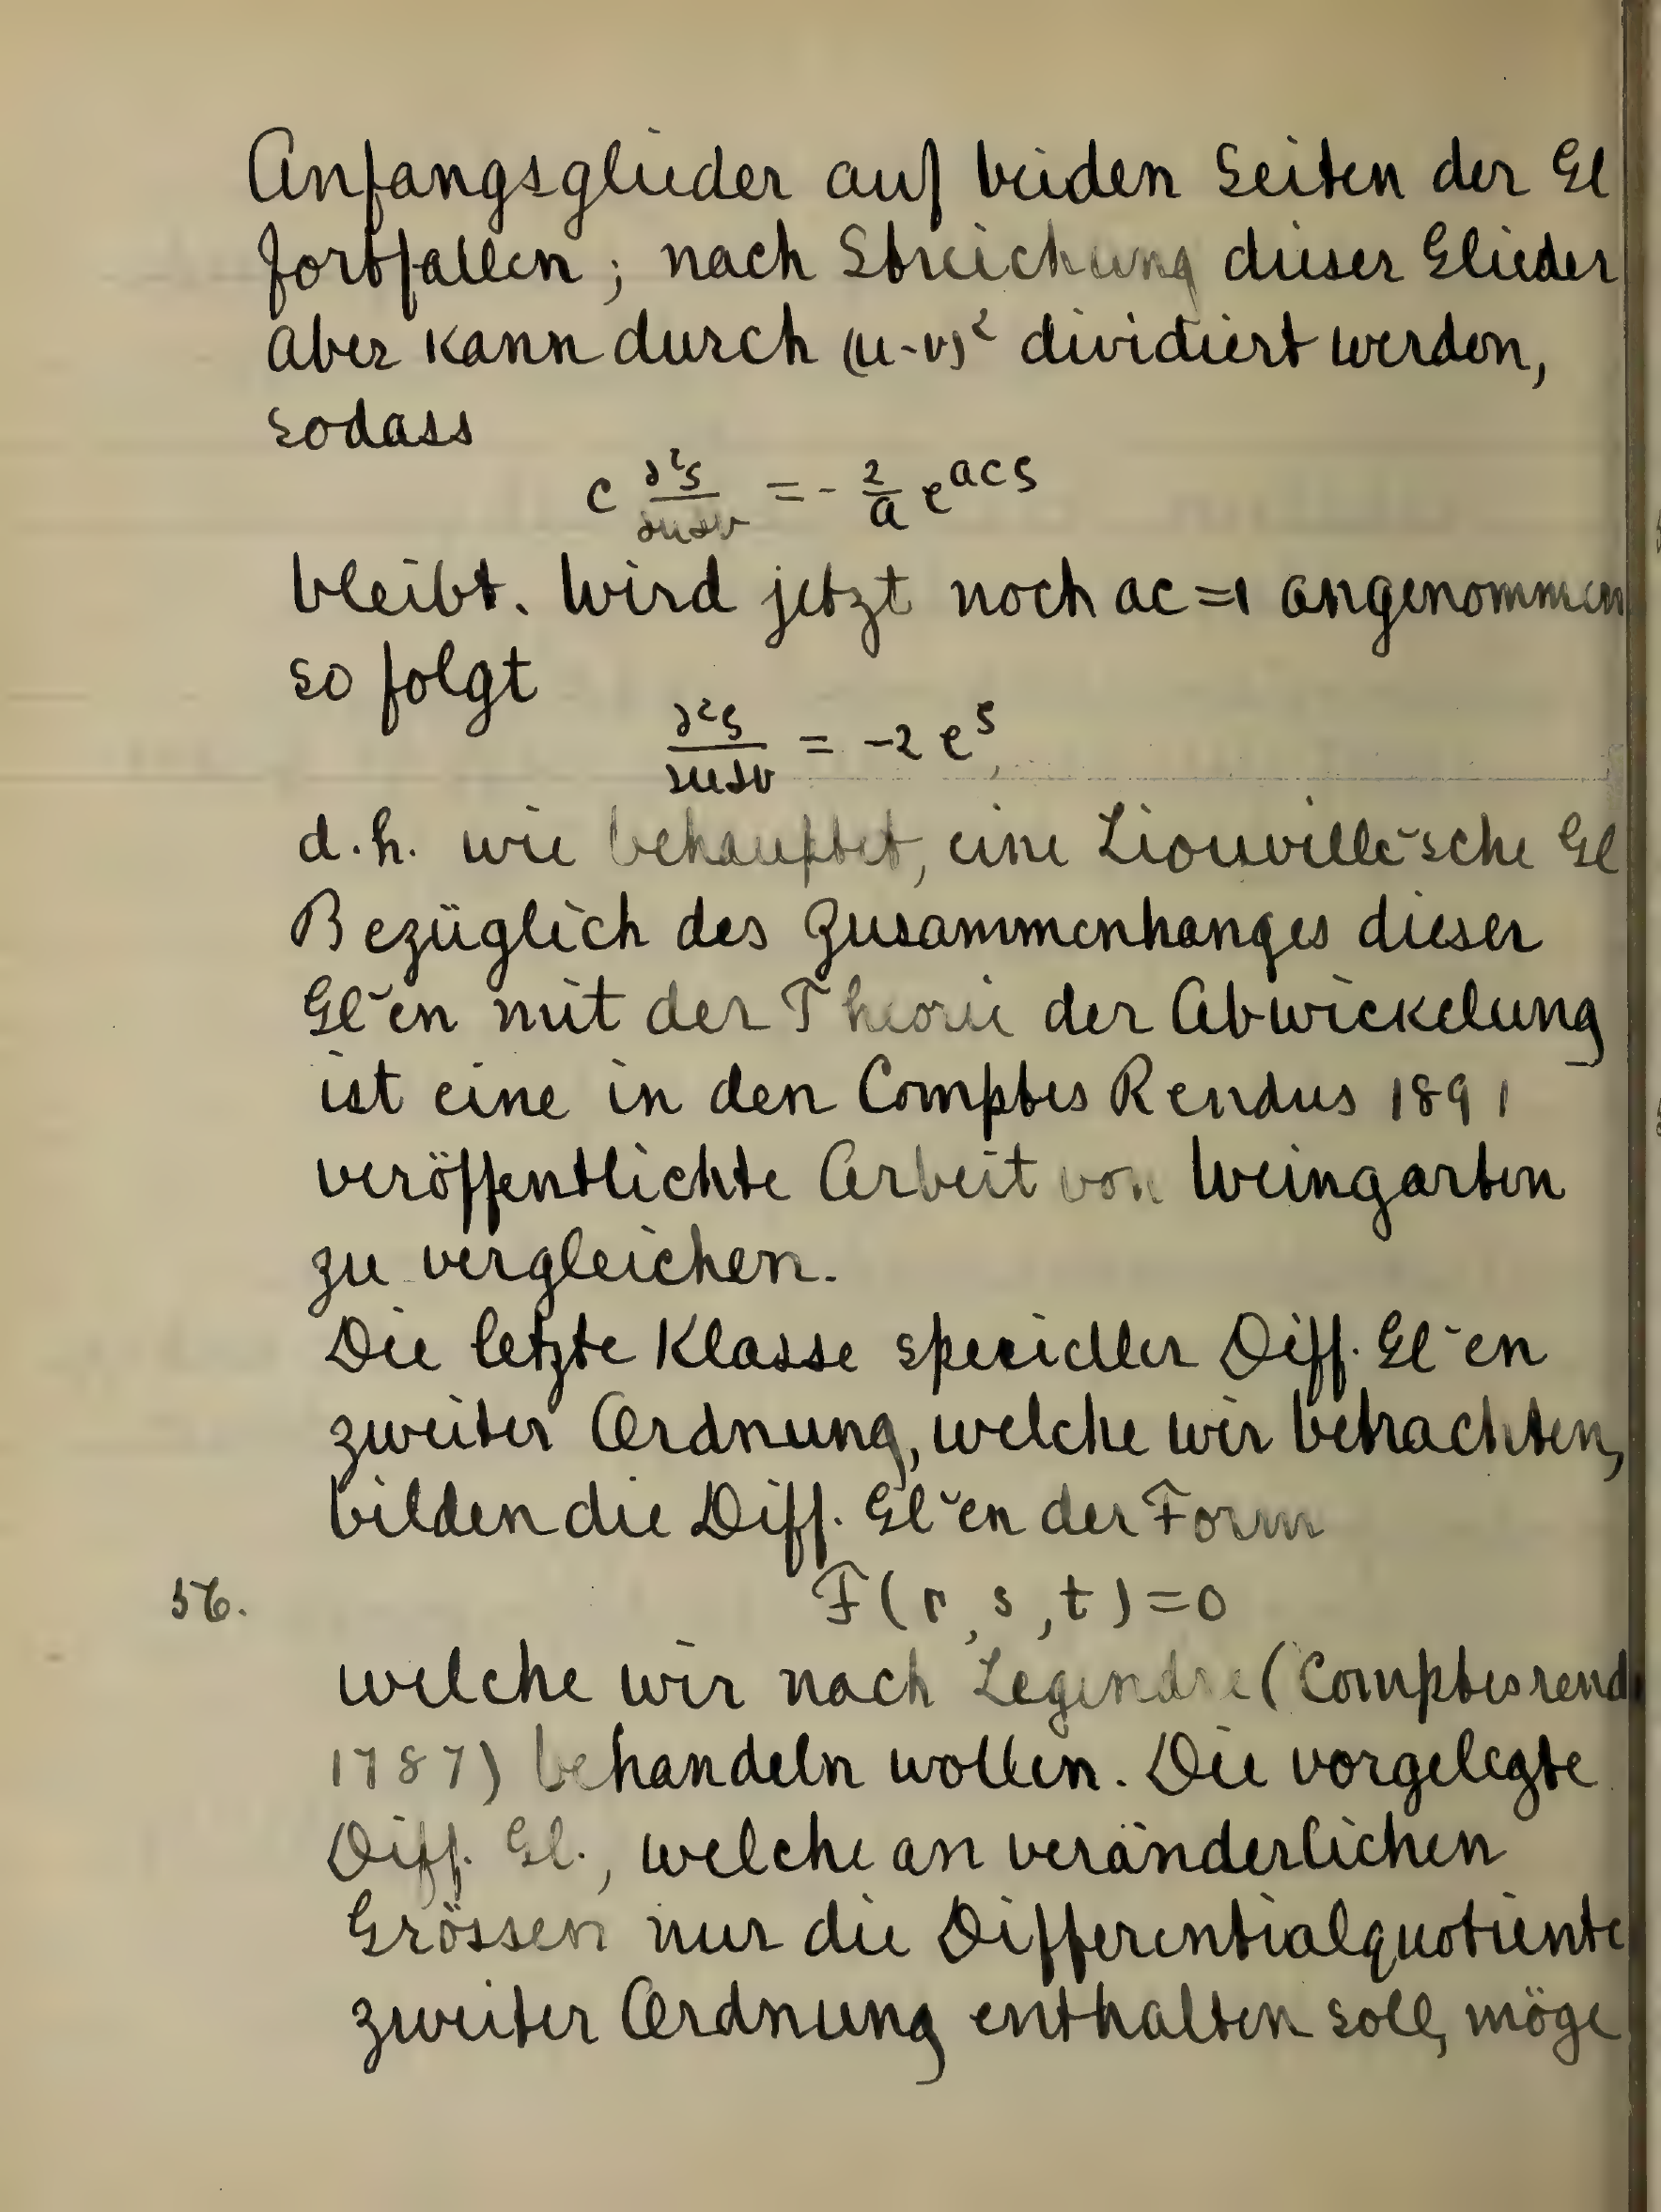 Anfangsglieder auf beiden Seiten der Gl
fortfallen; nach Streichung dieser Glieder
aber kann durch (u-v)² dividiert werden,
sodass
c ∂²ζ/∂u∂v = - 2/a e^{acζ}
bleibt. Wird jetzt noch ac=1 angenommen
so folgt
∂²ζ/∂u∂v = -2 e^ζ,
d.h. wie behauptet, eine Liouville'sche Gl
Bezüglich des Zusammenhanges dieser
Gl~en mit der Theorie der Abwickelung
ist eine in den Comptes Rendus 1891
veröffentlichte Arbeit von Weingarten
zu vergleichen.
Die letzte Klasse specieller Diff. Gl~en
zweiter Ordnung, welche wir betrachten,
bilden die Diff. Gl~en der Form
56. F(r, s, t)=0
welche wir nach Legendre (Comptes rend
1787) behandeln wollen. Die vorgelegte
Diff. Gl., welche an veränderlichen
Grössen nur die Differentialquotiente
zweiter Ordnung enthalten soll, möge